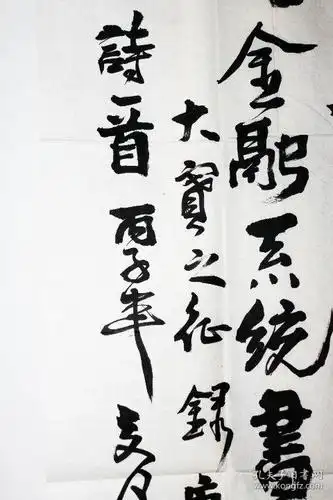 金融系統書
大寶之征錄
詩一首 丙子年
孔夫子旧书网
www.kongfz.com